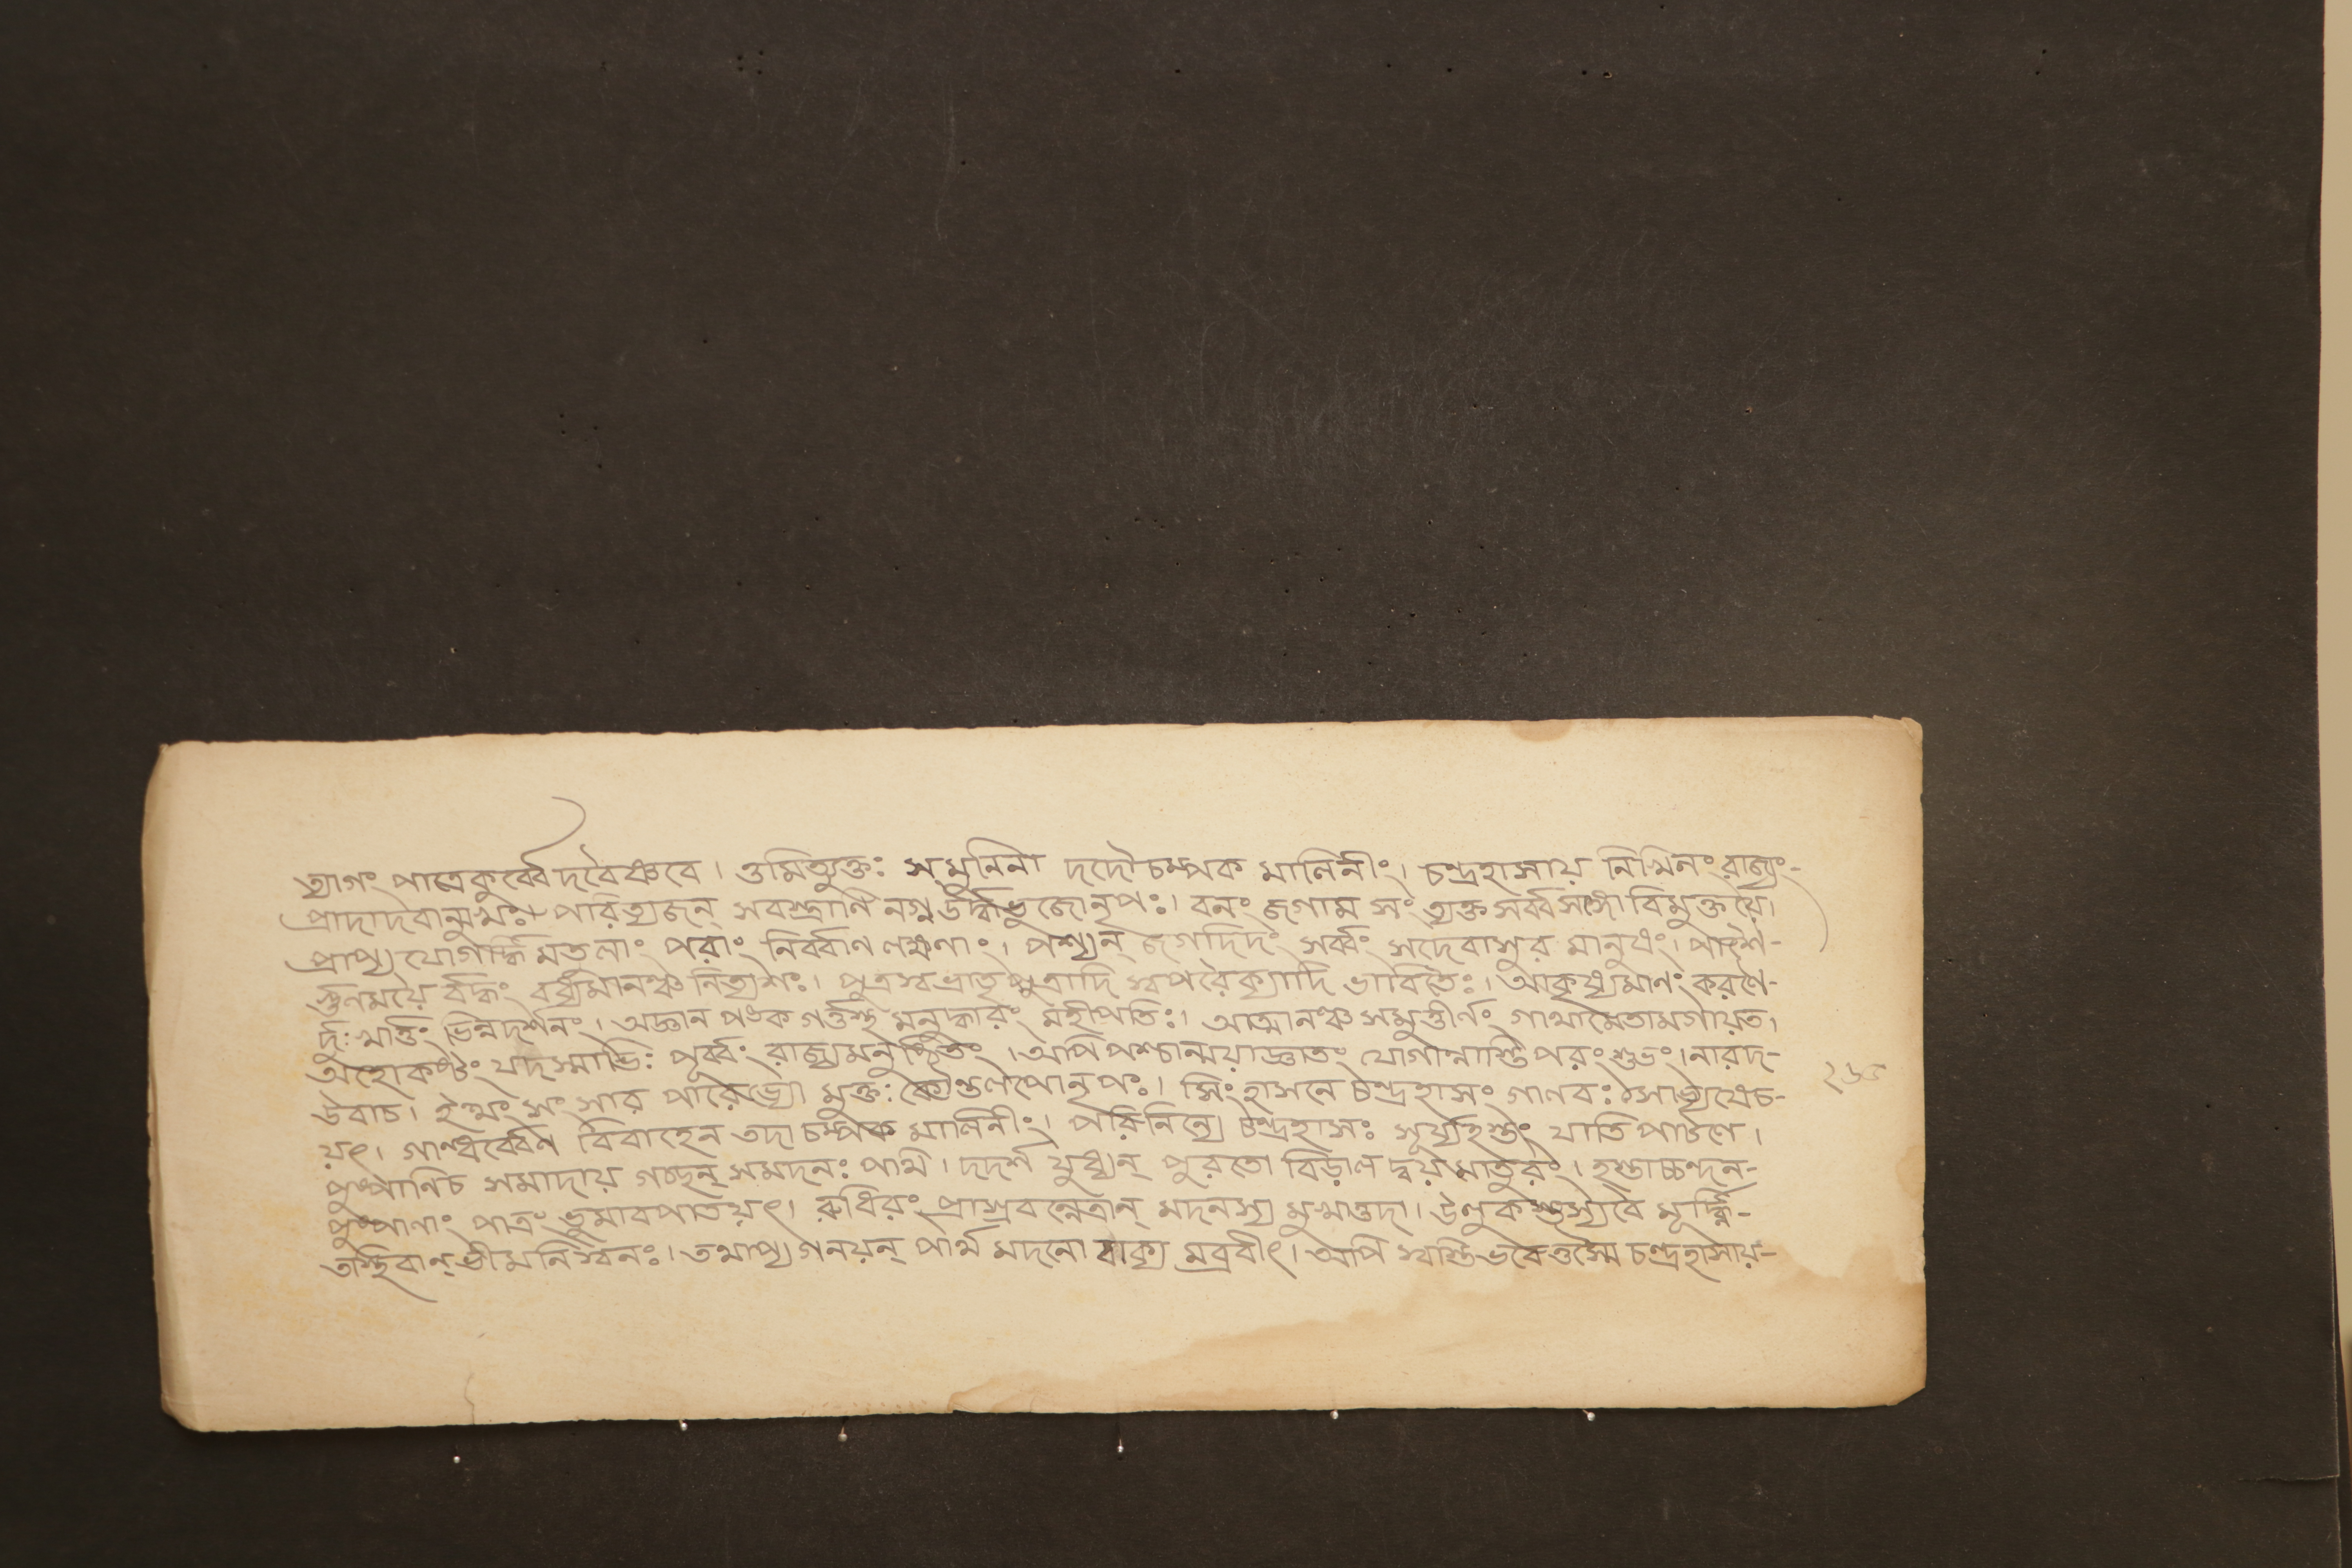 ত্যাগং পাত্রেকুর্ব্বেদবৈষ্ণবে। ওমিত্যুক্তঃ সমুনিনা দদৌচম্পক মালিনীং। চন্দ্রহাসায় নিখিলং রাজ্যং-
প্রাদাদবান্মুখঃ পরিত্যজন্ সবস্ত্রাণি নগ্ন উর্দ্ধভুজোনৃপঃ। বনং জগাম সং ত্যক্ত সর্ব্বসঙ্গো বিমুক্তয়ে।
প্রাপ্য যোগর্দ্ধি মতুলাং পরাং নির্ব্বাণ লক্ষণাং। পশ্যন্ জগদিদং সর্ব্বং সদেবাসুর মানুষং। পাশৈ-
র্গুণময়ৈ র্বদ্ধং বধ্যমানঞ্চ নিত্যশঃ। পুত্রস্বভ্রাতৃপুত্রাদি স্বপরৈক্যাদি ভাবিতৈঃ। আকৃষ্যমাণং করণৈ-
র্দুঃখার্ত্তং ভিন্নদর্শনং। অজ্ঞান পঙক গর্ত্তস্থ মনুদ্ধারং মহীপতিঃ। আত্মানঞ্চ সমুত্তীর্ণং গাথামেতামগায়ত।
অহোকষ্টং যদস্মাভিঃ পূর্ব্বং রাজ্যমনুষ্ঠিতং। অপি পশ্চান্ময়াজ্ঞাতং যোগান্নাস্তি পরং শুভং। নারদ-
উবাচ। ইত্থং সং সার পারেভ্যো মুক্তঃ কৌন্তলপোনৃপঃ। সিংহাসনে চন্দ্রহাসং গালবঃ সোভ্যষেচ-
য়ৎ। গান্ধর্ব্বেণ বিবাহেন তদা চম্পক মালিনীং। পরিনিন্যে চন্দ্রহাসঃ সূর্য্যহস্তং যাতি পাটলে।
পুষ্পানিচ সমাদায় গচ্ছন্ সমদনঃ পার্থ। দদর্শ যুধ্যন্ পুরতো বিড়াল দ্বয় মাতুরং। হস্তাচ্চন্দন-
পুষ্পাণাং পাত্রং ভুমাবপাতয়ৎ। রুধিরং প্রাস্রবন্নেত্রান্ মদনস্য মুখাত্তদা। উলুকস্তস্যবৈ মূর্দ্ধ্নি-
তস্থিবান্ ভীমনিস্বনঃ। তথাপ্য গনয়ন্ পার্থ মদনো বাক্য মব্রবীৎ। অপি স্বস্তিভবেত্তস্মৈ চন্দ্রহাসায়-